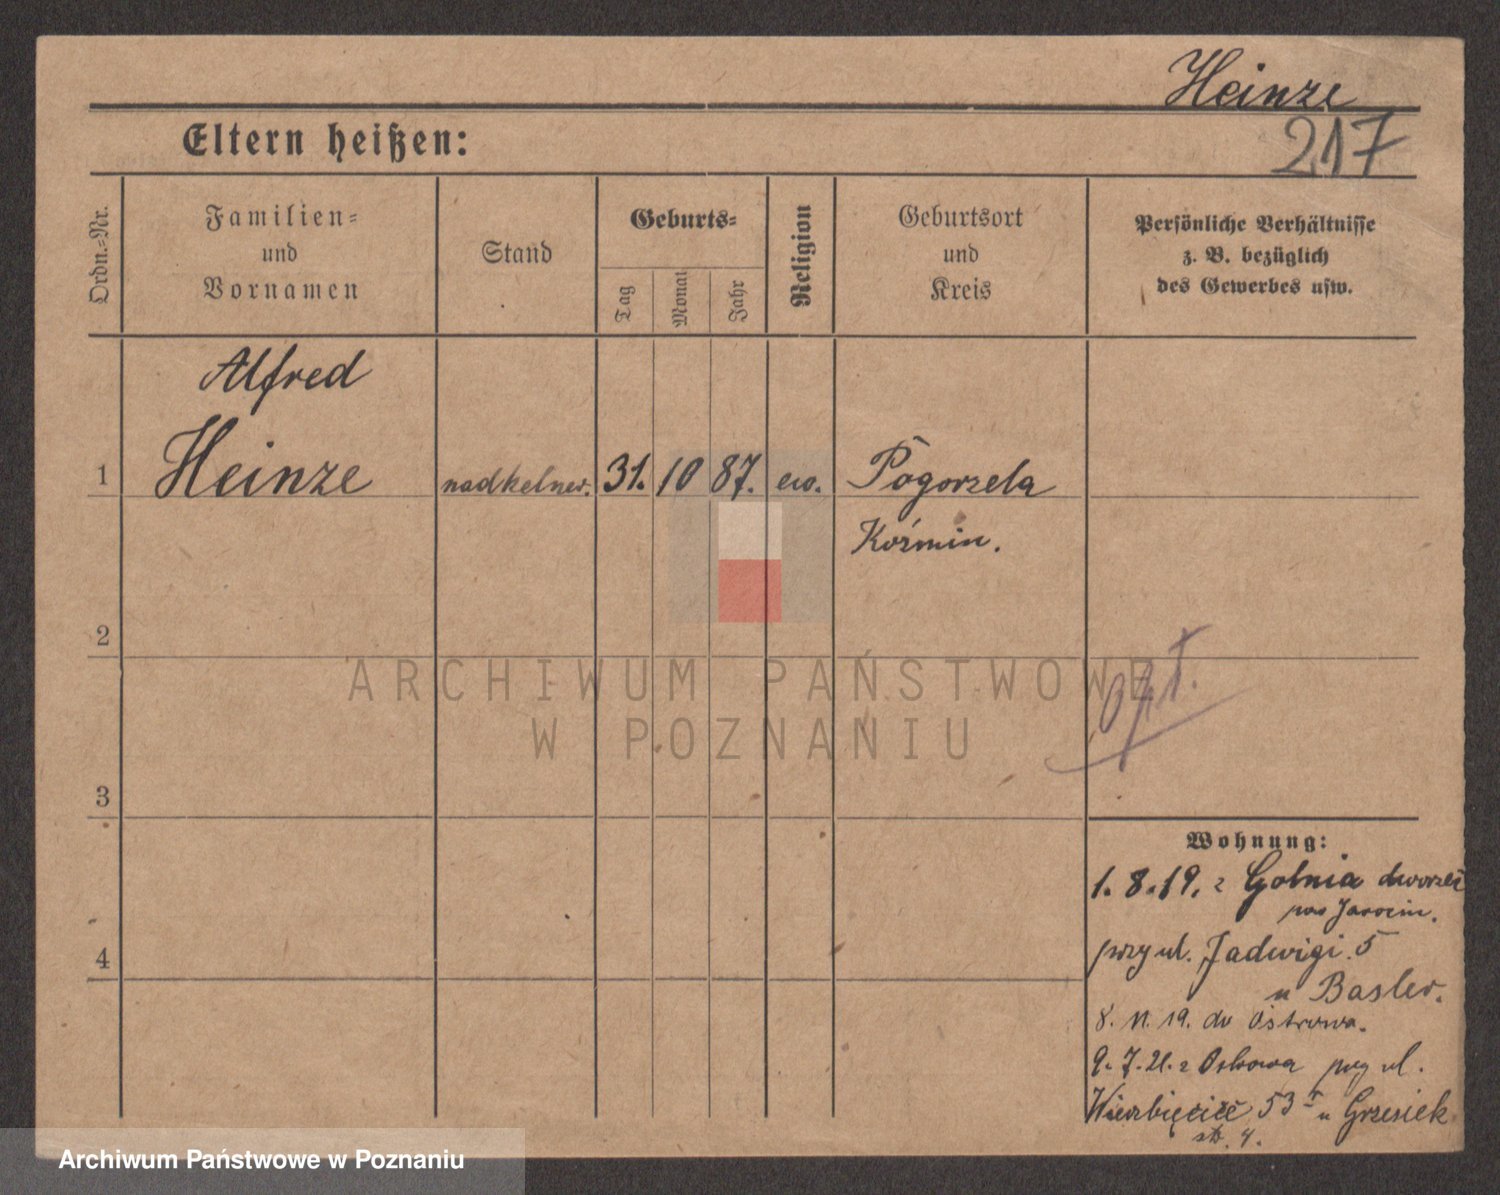 Heinze
217
Eltern heißen:
Ordn.-Nr.
Familien-
und
Vornamen
Stand
Geburts-
Tag
Monat
Jahr
Religion
Geburtsort
und
Kreis
Persönliche Verhältnisse
z. B. bezüglich
des Gewerbes usw.
Alfred
1 Heinze nadkelner. 31. 10 87. ew. Pogorzela
Koźmin.
2
3
4
Wohnung:
1. 8. 19. z Golnia dworzec
pow Jarocin.
przy ul. Jadwigi 5
u Basler.
8. 11. 19. do Ostrowa.
9. 7. 21. z Ostrowa przy ul.
Wierzbięcice 53 u Grzesiek
4.
ARCHIWUM PAŃSTWOWE
W POZNANIU
Archiwum Państwowe w Poznaniu